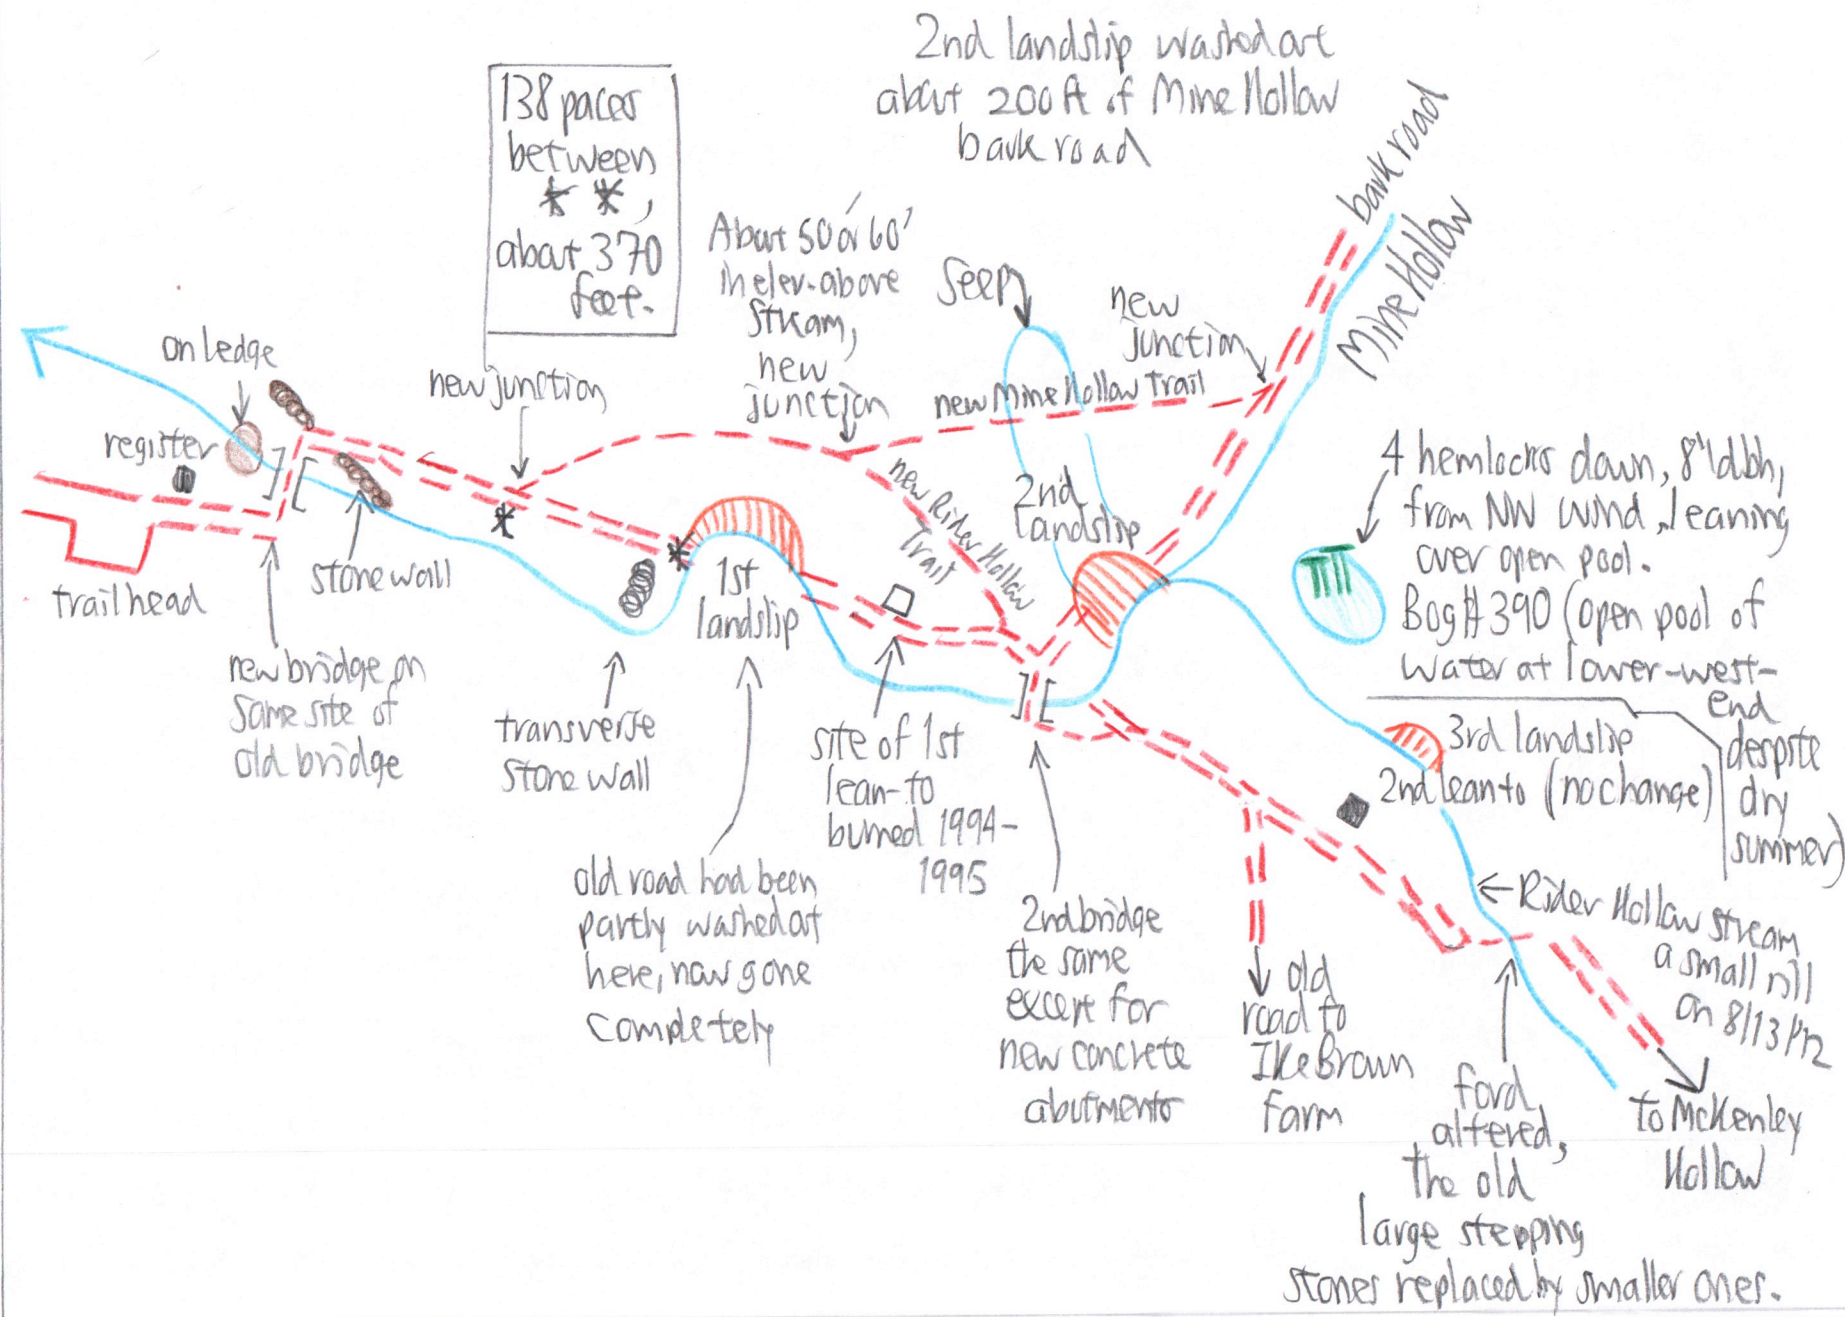 2nd landslip washed out
about 200 ft of Mine Hollow
bark road
138 paces
between
* *,
about 370
feet.
About 50 or 60'
in elev. above
stream,
new
junction
Seep
new
junction
bark road
Mine Hollow
on ledge
register
new junction
new Mine Hollow Trail
new Rider Hollow
Trail
2nd
landslip
4 hemlocks down, 8" dbh,
from NW wind, leaning
over open pool.
Bog # 390 (open pool of
water at lower-west-
end
despite
dry
summer)
trailhead
stone wall
1st
landslip
new bridge on
same site of
old bridge
transverse
stone wall
site of 1st
lean-to
burned 1994-
1995
3rd landslip
2nd leanto (no change)
old road had been
partly washed out
here, now gone
completely
2nd bridge
the same
except for
new concrete
abutments
old
road to
Ike Brown
Farm
Rider Hollow stream
a small rill
on 8/13
ford
altered,
the old
large stepping
stones replaced by smaller ones.
to McKenley
Hollow